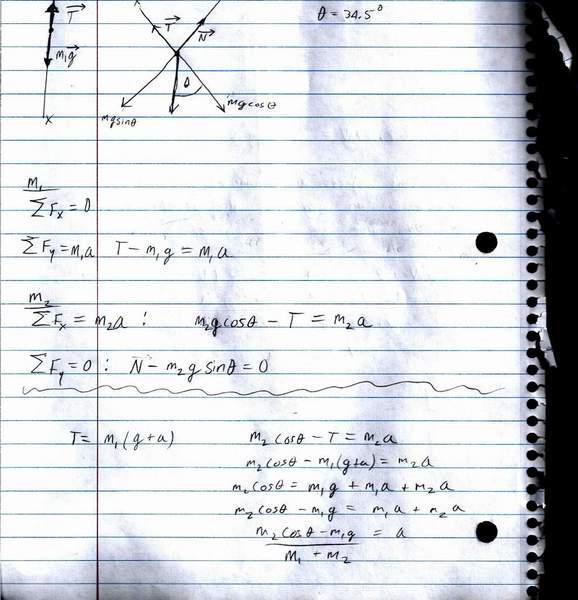 T⃗ T⃗ N⃗ θ = 34.5°
m₁g
θ
mg cosθ
x mg sinθ
m₁
∑Fx = 0
∑Fy = m₁a T - m₁g = m₁a
m₂
∑Fx = m₂a : m₂g cosθ - T = m₂a
∑Fy = 0 : N - m₂g sinθ = 0
T = m₁(g+a) m₂ cosθ - T = m₂a
m₂ cosθ - m₁(g+a) = m₂a
m₂ cosθ = m₁g + m₁a + m₂a
m₂ cosθ - m₁g = m₁a + m₂a
m₂ cosθ - m₁g = a
m₁ + m₂